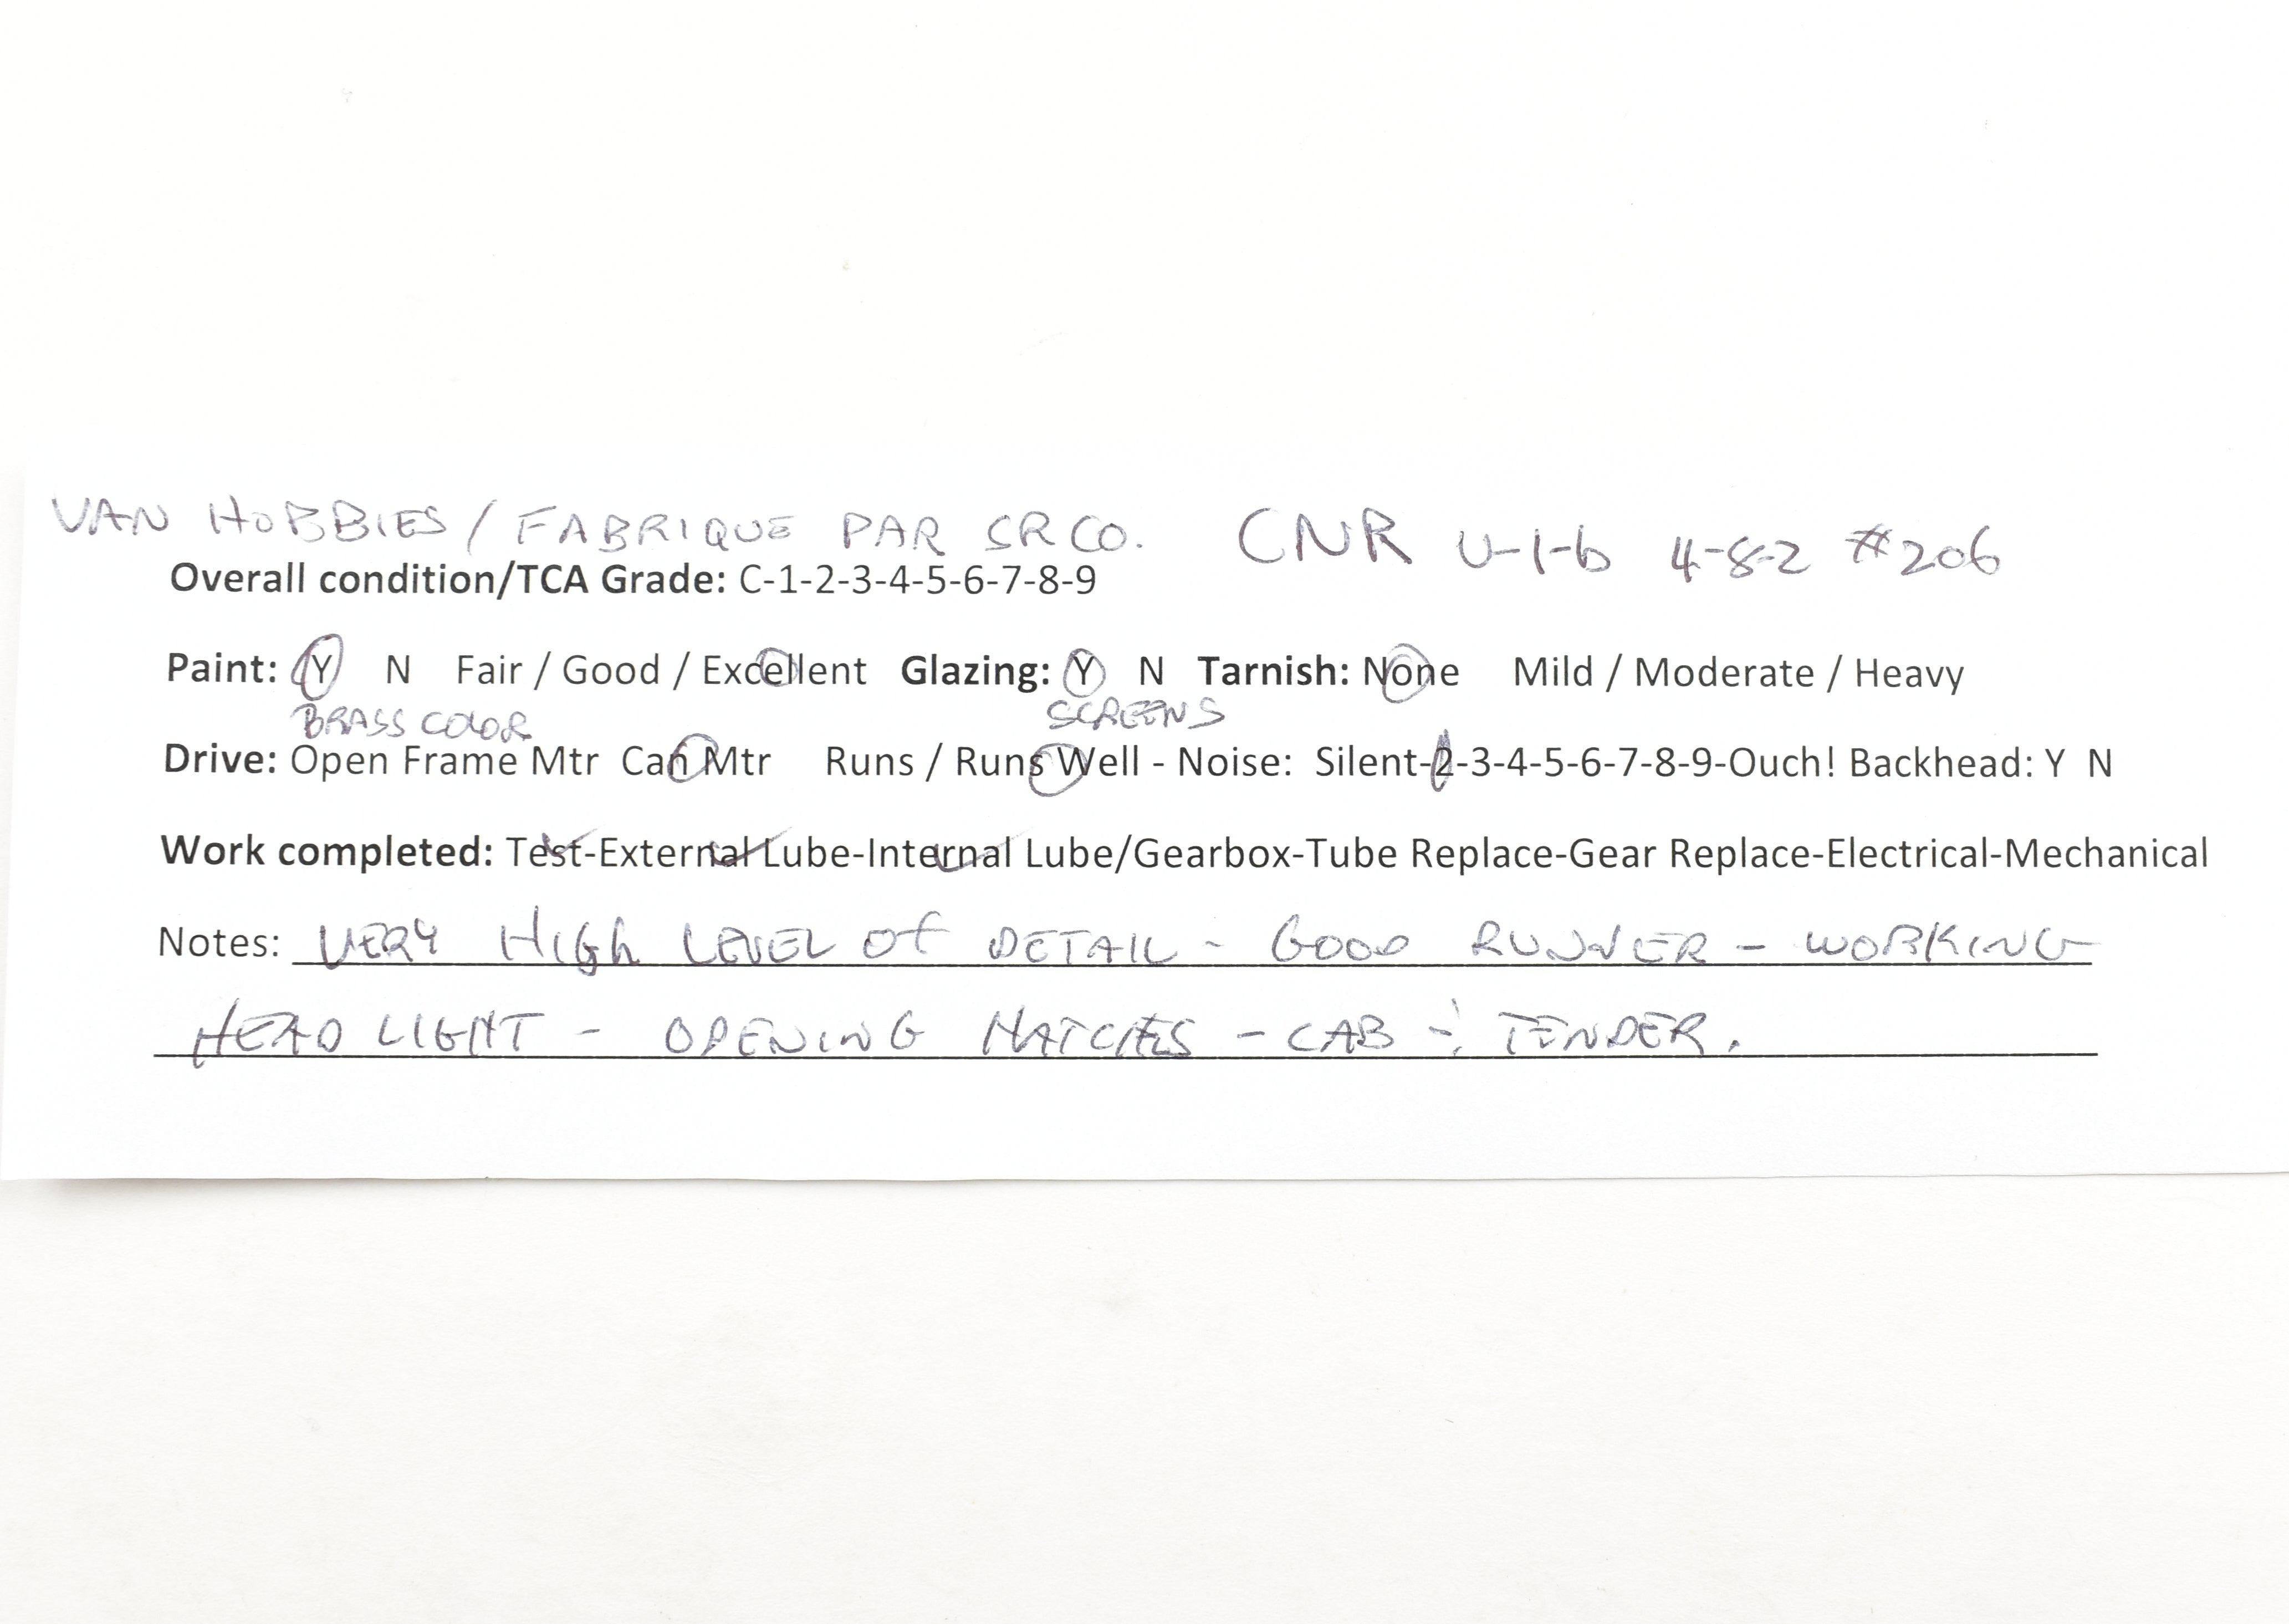 VAN HOBBIES / FABRIQUE PAR SR CO. CNR U-1-b 4-8-2 #206
Overall condition/TCA Grade: C-1-2-3-4-5-6-7-8-9
Paint: Y N Fair / Good / Excellent Glazing: Y N Tarnish: None Mild / Moderate / Heavy
BRASS COLOR SCREENS
Drive: Open Frame Mtr Can Mtr Runs / Runs Well - Noise: Silent-2-3-4-5-6-7-8-9-Ouch! Backhead: Y N
Work completed: Test-External Lube-Internal Lube/Gearbox-Tube Replace-Gear Replace-Electrical-Mechanical
Notes: VERY HIGH LEVEL OF DETAIL - GOOD RUNNER - WORKING
HEAD LIGHT - OPENING HATCHES - CAB & TENDER.